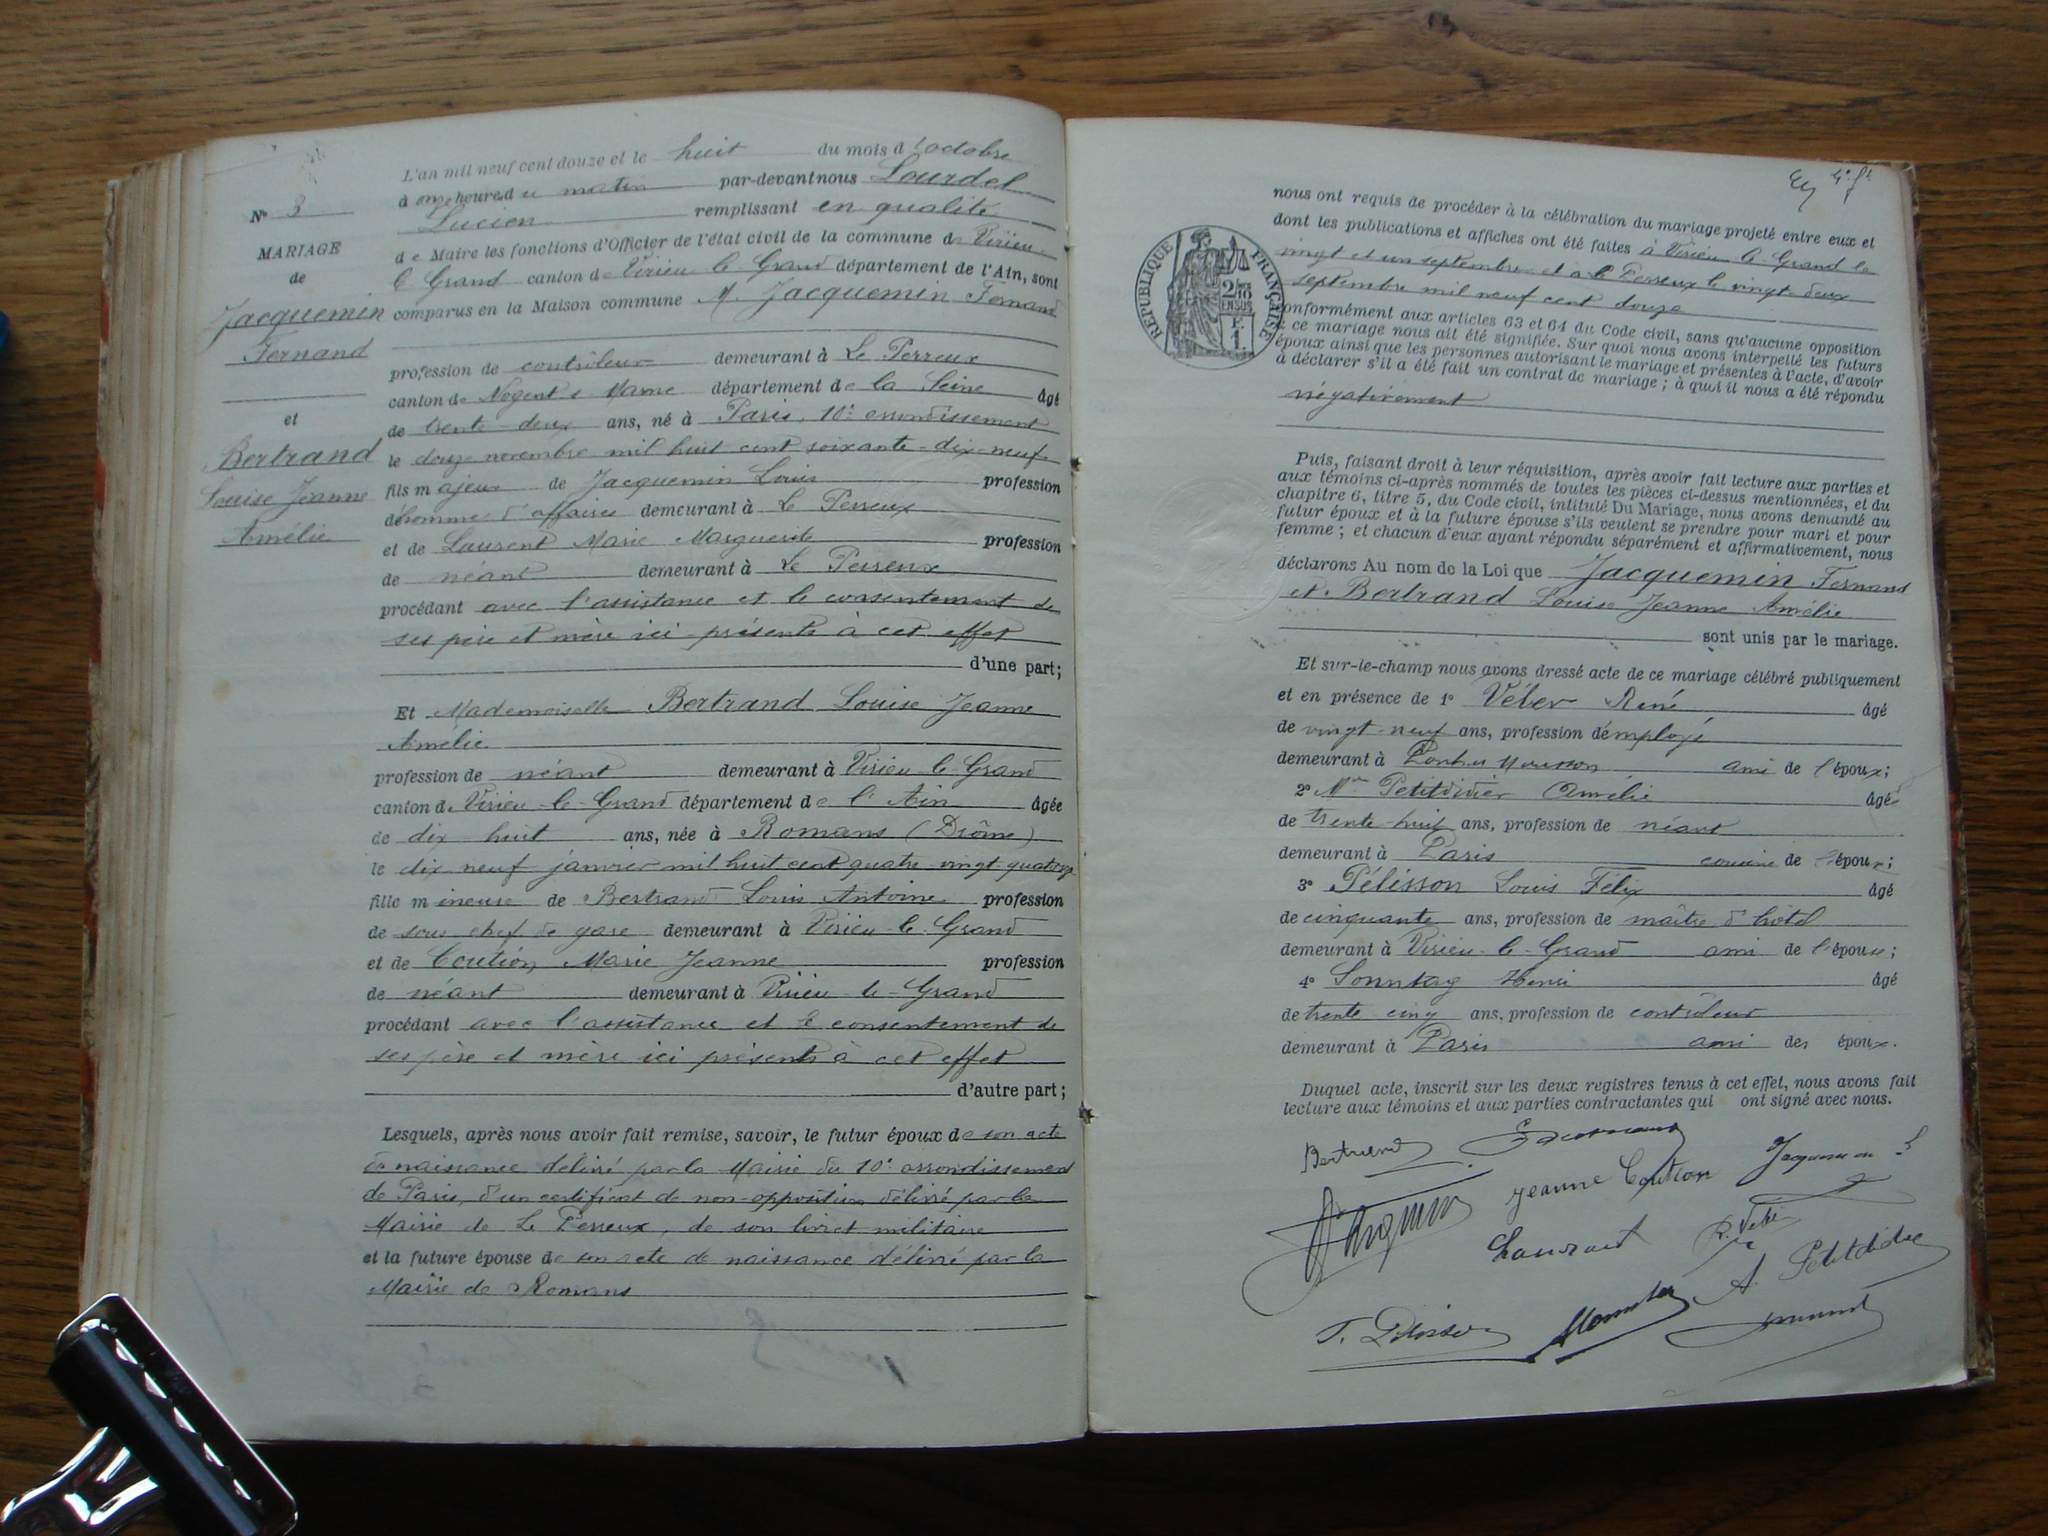 N° 3
MARIAGE
de
Jacquemin
Fernand
et
Bertrand
Louise Jeanne
Amélie
L'an mil neuf cent douze et le huit du mois d'octobre
à onze heures du matin par-devant nous Lourdel
Lucien remplissant en qualité
de Maire les fonctions d'Officier de l'état civil de la commune de Virieu
le Grand canton de Virieu-le-Grand département de l'Ain, sont
comparus en la Maison commune M. Jacquemin Fernand
profession de contrôleur demeurant à Le Perreux
canton de Nogent s Marne département de la Seine âgé
de trente-deux ans, né à Paris, 10e arrondissement
le douze novembre mil huit cent soixante-dix-neuf
fils majeur de Jacquemin Louis profession
d'homme d'affaires demeurant à Le Perreux
et de Laurent Marie Marguerite profession
de néant demeurant à Le Perreux
procédant avec l'assistance et le consentement de
ses père et mère ici présents à cet effet
d'une part;
Et Mademoiselle Bertrand Louise Jeanne
Amélie
profession de néant demeurant à Virieu-le-Grand
canton de Virieu-le-Grand département de l'Ain âgée
de dix-huit ans, née à Romans (Drôme)
le dix neuf janvier mil huit cent quatre-vingt-quatorze
fille mineure de Bertrand Louis Antoine profession
de sous chef de gare demeurant à Virieu-le-Grand
et de Coution Marie Jeanne profession
de néant demeurant à Virieu-le-Grand
procédant avec l'assistance et le consentement de
ses père et mère ici présents à cet effet
d'autre part;
Lesquels, après nous avoir fait remise, savoir, le futur époux de son acte
de naissance délivré par la Mairie du 10e arrondissement
de Paris, d'un certificat de non-opposition délivré par la
Mairie de Le Perreux, de son livret militaire
et la future épouse de son acte de naissance délivré par la
Mairie de Romans
4e ft
RÉPUBLIQUE FRANÇAISE
2/10 EN SUS
F. 1.
nous ont requis de procéder à la célébration du mariage projeté entre eux et
dont les publications et affiches ont été faites à Virieu-le-Grand le
vingt et un septembre et à Le Perreux le vingt-deux
septembre mil neuf cent douze
conformément aux articles 63 et 64 du Code civil, sans qu'aucune opposition
à ce mariage nous ait été signifiée. Sur quoi nous avons interpellé les futurs
époux ainsi que les personnes autorisant le mariage et présentes à l'acte, d'avoir
à déclarer s'il a été fait un contrat de mariage; à quoi il nous a été répondu
négativement
Puis, faisant droit à leur réquisition, après avoir fait lecture aux parties et
aux témoins ci-après nommés de toutes les pièces ci-dessus mentionnées, et du
chapitre 6, titre 5, du Code civil, intitulé Du Mariage, nous avons demandé au
futur époux et à la future épouse s'ils veulent se prendre pour mari et pour
femme; et chacun d'eux ayant répondu séparément et affirmativement, nous
déclarons Au nom de la Loi que Jacquemin Fernand
et Bertrand Louise Jeanne Amélie
sont unis par le mariage.
Et sur-le-champ nous avons dressé acte de ce mariage célébré publiquement
et en présence de 1° Véber René âgé
de vingt-neuf ans, profession d'employé
demeurant à Pont-à-Mousson ami de l'époux;
2° Mme Petitdidier Amélie âgée
de trente-huit ans, profession de néant
demeurant à Paris cousine de l'époux;
3° Pélisson Louis Félix âgé
de cinquante ans, profession de maître d'hôtel
demeurant à Virieu-le-Grand ami de l'épouse;
4° Sonntag Henri âgé
de trente cinq ans, profession de contrôleur
demeurant à Paris ami des époux.
Duquel acte, inscrit sur les deux registres tenus à cet effet, nous avons fait
lecture aux témoins et aux parties contractantes qui ont signé avec nous.
Bertrand
Jeanne Coution
Laurent
A. Petitdidier